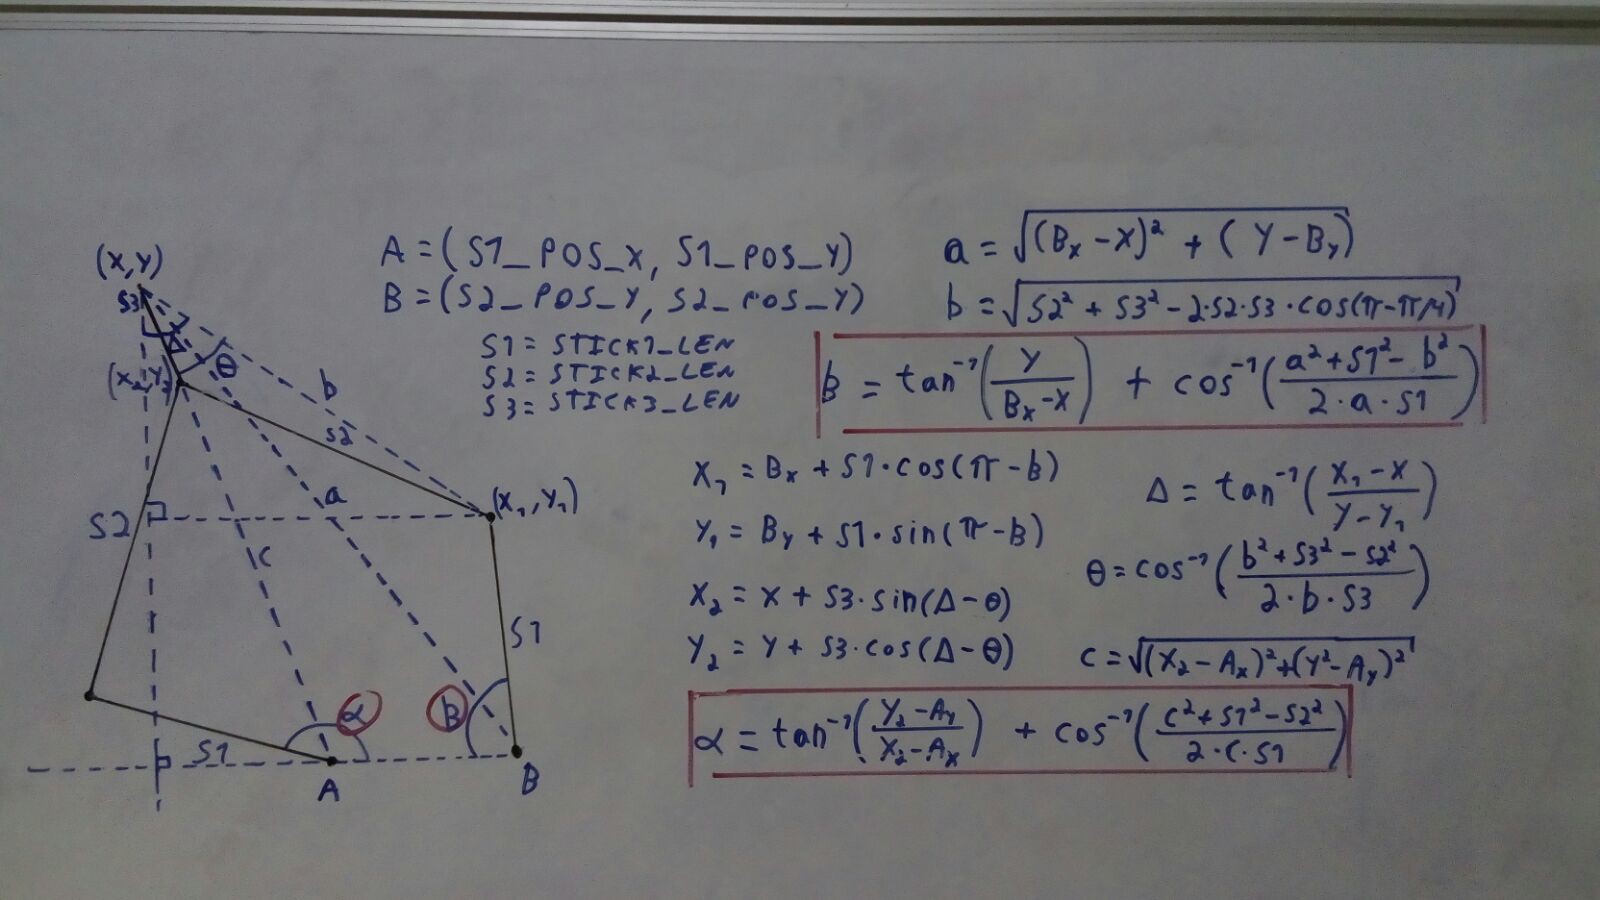 (X,Y)
S3
θ
(X2,Y2)
b
S2
a
(X1,Y1)
S2
c
S1
S1
α
B
A
B
A = (S1_POS_X, S1_POS_Y)
B = (S2_POS_Y, S2_POS_Y)
S1 = STICK1_LEN
S2 = STICK2_LEN
S3 = STICK3_LEN
a = √((Bx - X)² + (Y - By)
b = √(S2² + S3² - 2·S2·S3·cos(π - π/4)
B = tan⁻¹(Y / (Bx - X)) + cos⁻¹((a² + S1² - b²) / (2·a·S1))
X1 = Bx + S1·cos(π - B)
Y1 = By + S1·sin(π - B)
X2 = X + S3·sin(Δ - θ)
Y2 = Y + S3·cos(Δ - θ)
Δ = tan⁻¹((X1 - X) / (Y - Y1))
θ = cos⁻¹((b² + S3² - S2²) / (2·b·S3))
c = √((X2 - Ax)² + (Y² - Ay)²
α = tan⁻¹((Y2 - Ay) / (X2 - Ax)) + cos⁻¹((c² + S1² - S2²) / (2·c·S1))